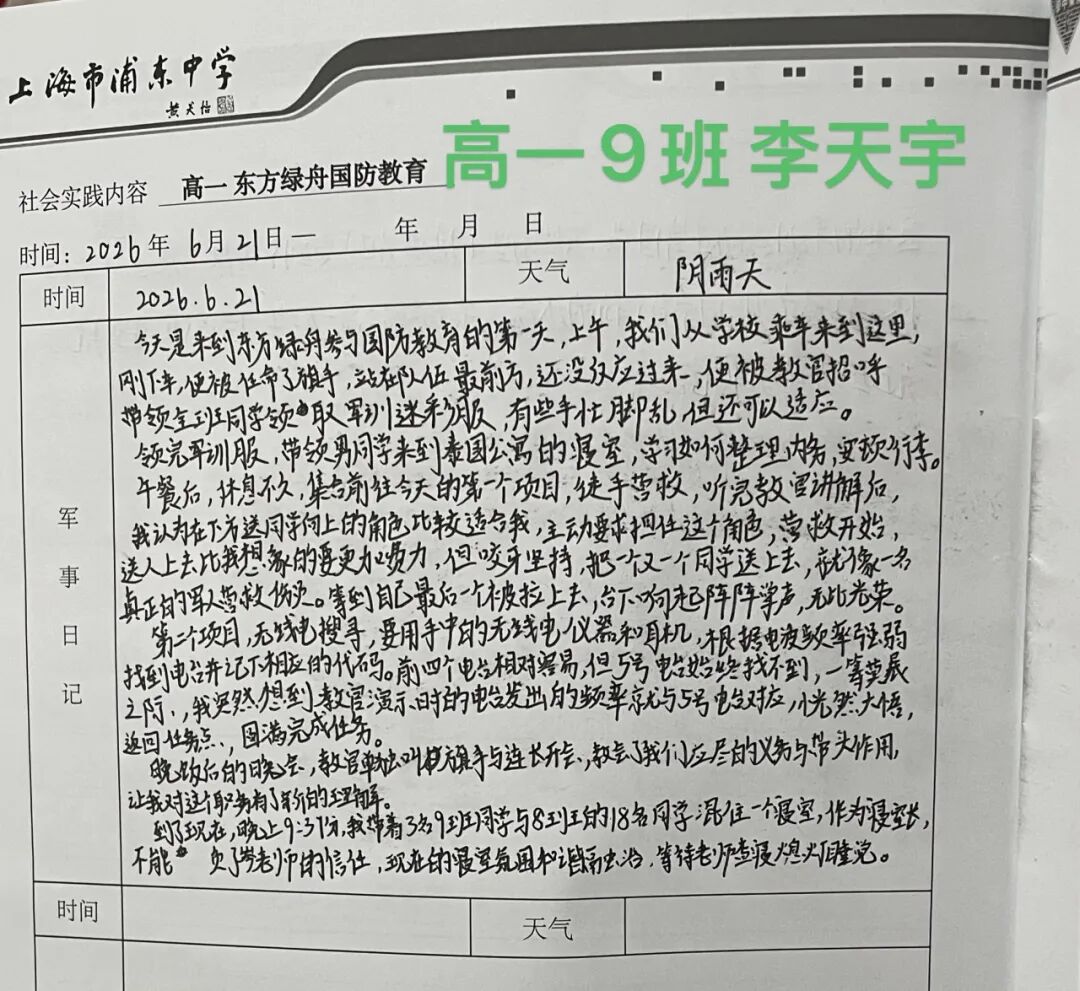 上海市浦东中学
黄炎培
高一9班 李天宇
社会实践内容 高一 东方绿舟国防教育
时间：2026年 6月21日— 年 月 日
时间 2026.6.21 天气 阴雨天
军事日记
今天是来到东方绿舟参与国防教育的第一天，上午，我们从学校乘车来到这里，
刚下车，便被任命了旗手，站在队伍最前方，还没反应过来，便被教官招呼
带领全班同学领取军训迷彩服，有些手忙脚乱，但还可以适应。
领完军训服，带领男同学来到泰国公寓的寝室，学习如何整理内务，安顿行李。
午餐后，休息不久，集合前往今天的第一个项目，徒手营救，听完教官讲解后，
我认为在下方送同学向上的角色比较适合我，主动要求担任这个角色，营救开始，
送人上去比我想象的要更加费力，但咬牙坚持，把一个又一个同学送上去，就像一名
真正的军人营救伤员。等到自己最后一个被拉上去，台下响起阵阵掌声，无比光荣。
第二个项目，无线电搜寻，要用手中的无线电仪器和耳机，根据电波频率强弱
找到电台并记下相应的代码。前四个电台相对容易，但5号电台始终找不到，一筹莫展
之际，我突然想到教官演示时的电台发出的频率就与5号电台对应，恍然大悟，
返回任务点，圆满完成任务。
晚饭后的晚会，教官单独叫旗手与连长开会，教会了我们应尽的义务与带头作用，
让我对这个职务有了新的理解。
到了现在，晚上9:31分，我带着3名9班同学与8班的18名同学混住一个寝室，作为寝室长，
不能 负了老师的信任，现在的寝室氛围和谐融洽，等待老师查寝熄火睡觉。
时间 天气